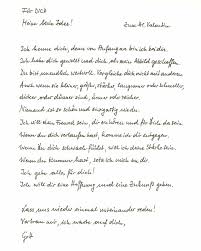 Für DICH
Meine liebe Jodee! Zum St. Valentin
Ich kenne dich, denn von Anfang an bin ich bei dir.
Ich habe dich gewollt und dich als mein Abbild geschaffen.
Du bist unendlich wertvoll. Vergleiche dich nicht mit anderen.
Auch wenn sie klüger, größer, stärker, langsamer oder schneller,
dicker oder dünner sind, ärmer oder reicher.
Niemand ist so schön und einzigartig wie du.
Ich will dein Freund sein, dir zuhören und für dich da sein.
Wenn du dich verlaufen hast, komme ich dir entgegen.
Wenn du dich schwach fühlst, will ich deine Stärke sein.
Wenn du Kummer hast, setz ich mich zu dir.
Ich gebe alles für dich!
Ich will dir eine Hoffnung und eine Zukunft geben.
Lass uns wieder einmal miteinander reden!
Vertrau mir, ich warte auf dich,
Gott